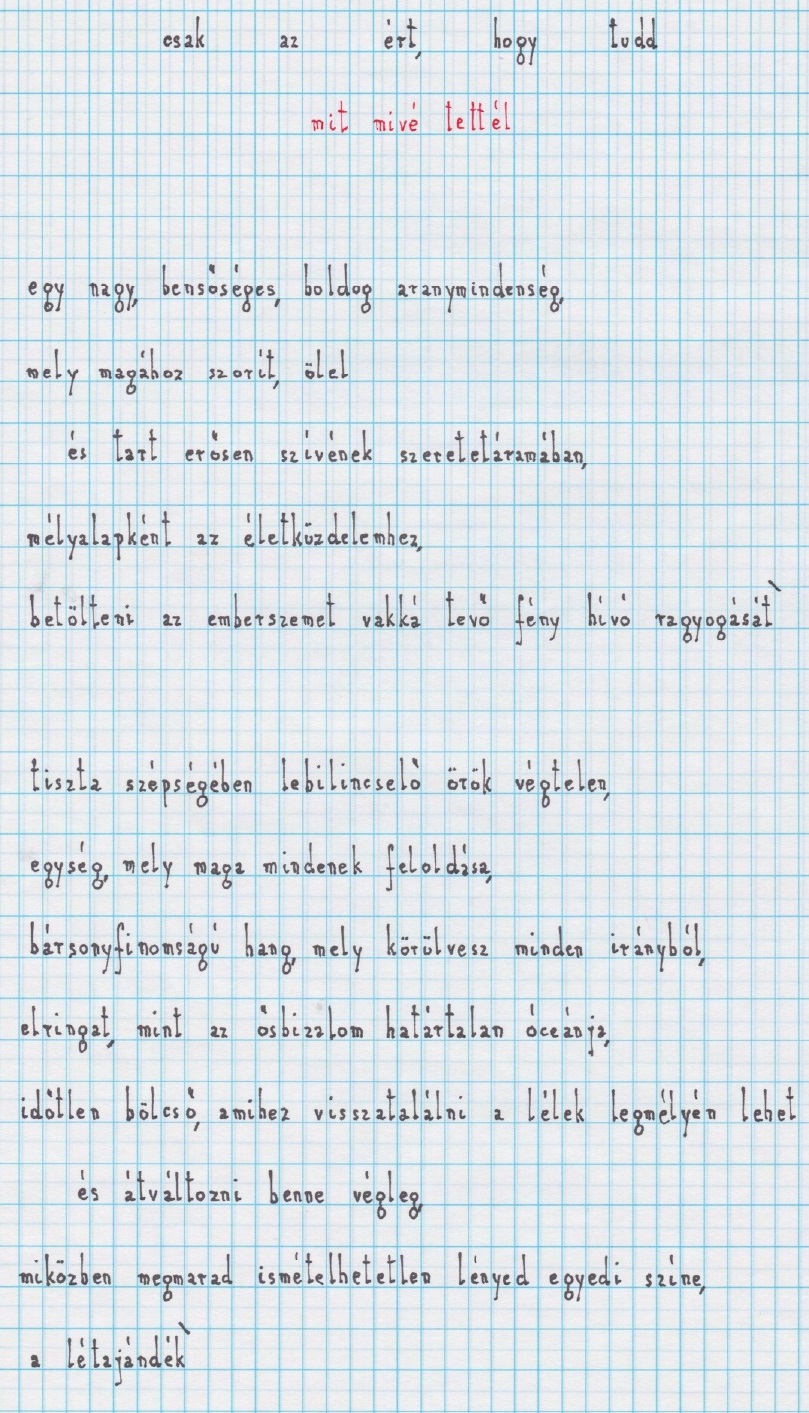 csak az ért, hogy tudd
mit mivé tettél
egy nagy, bensőséges, boldog aranymindenség,
mely magához szorít, ölel
és tart erősen szívének szeretetáramában,
mélyalapként az életküzdelemhez,
betölteni az emberszemet vakká tevő fény hívó ragyogását`
tiszta szépségében lebilincselő örök végtelen,
egység, mely maga mindenek feloldása,
bársonyfinomságú hang, mely körülvesz minden irányból,
elringat, mint az ősbizalom határtalan óceánja,
időtlen bölcső, amihez visszatalálni a lélek legmélyén lehet
és átváltozni benne végleg,
miközben megmarad ismételhetetlen lényed egyedi színe,
a létajándék`